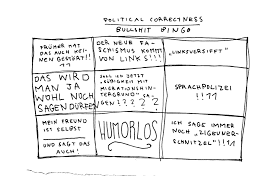 POLITICAL CORRECTNESS
BULLSHIT BINGO
FRÜHER HAT
DAS AUCH KEI-
NEN GESTÖRT!!
11
DER NEUE FA-
SCHISMUS KOMMT
VON LINKS!!!
„LINKSVERSIFFT"
DAS WIRD
MAN JA
WOHL NOCH
SAGEN DÜRFEN
SOLL ICH JETZT
MIGRATIONSHIN-
TERGRUND" SA-
GEN ??????
SPRACHPOLIZEI
!!11
MEIN FREUND
IST SELBST
UND SAGT DAS
AUCH!
HUMORLOS
ICH SAGE IMMER
NOCH „ZIGEUNER-
SCHNITZEL"!!1